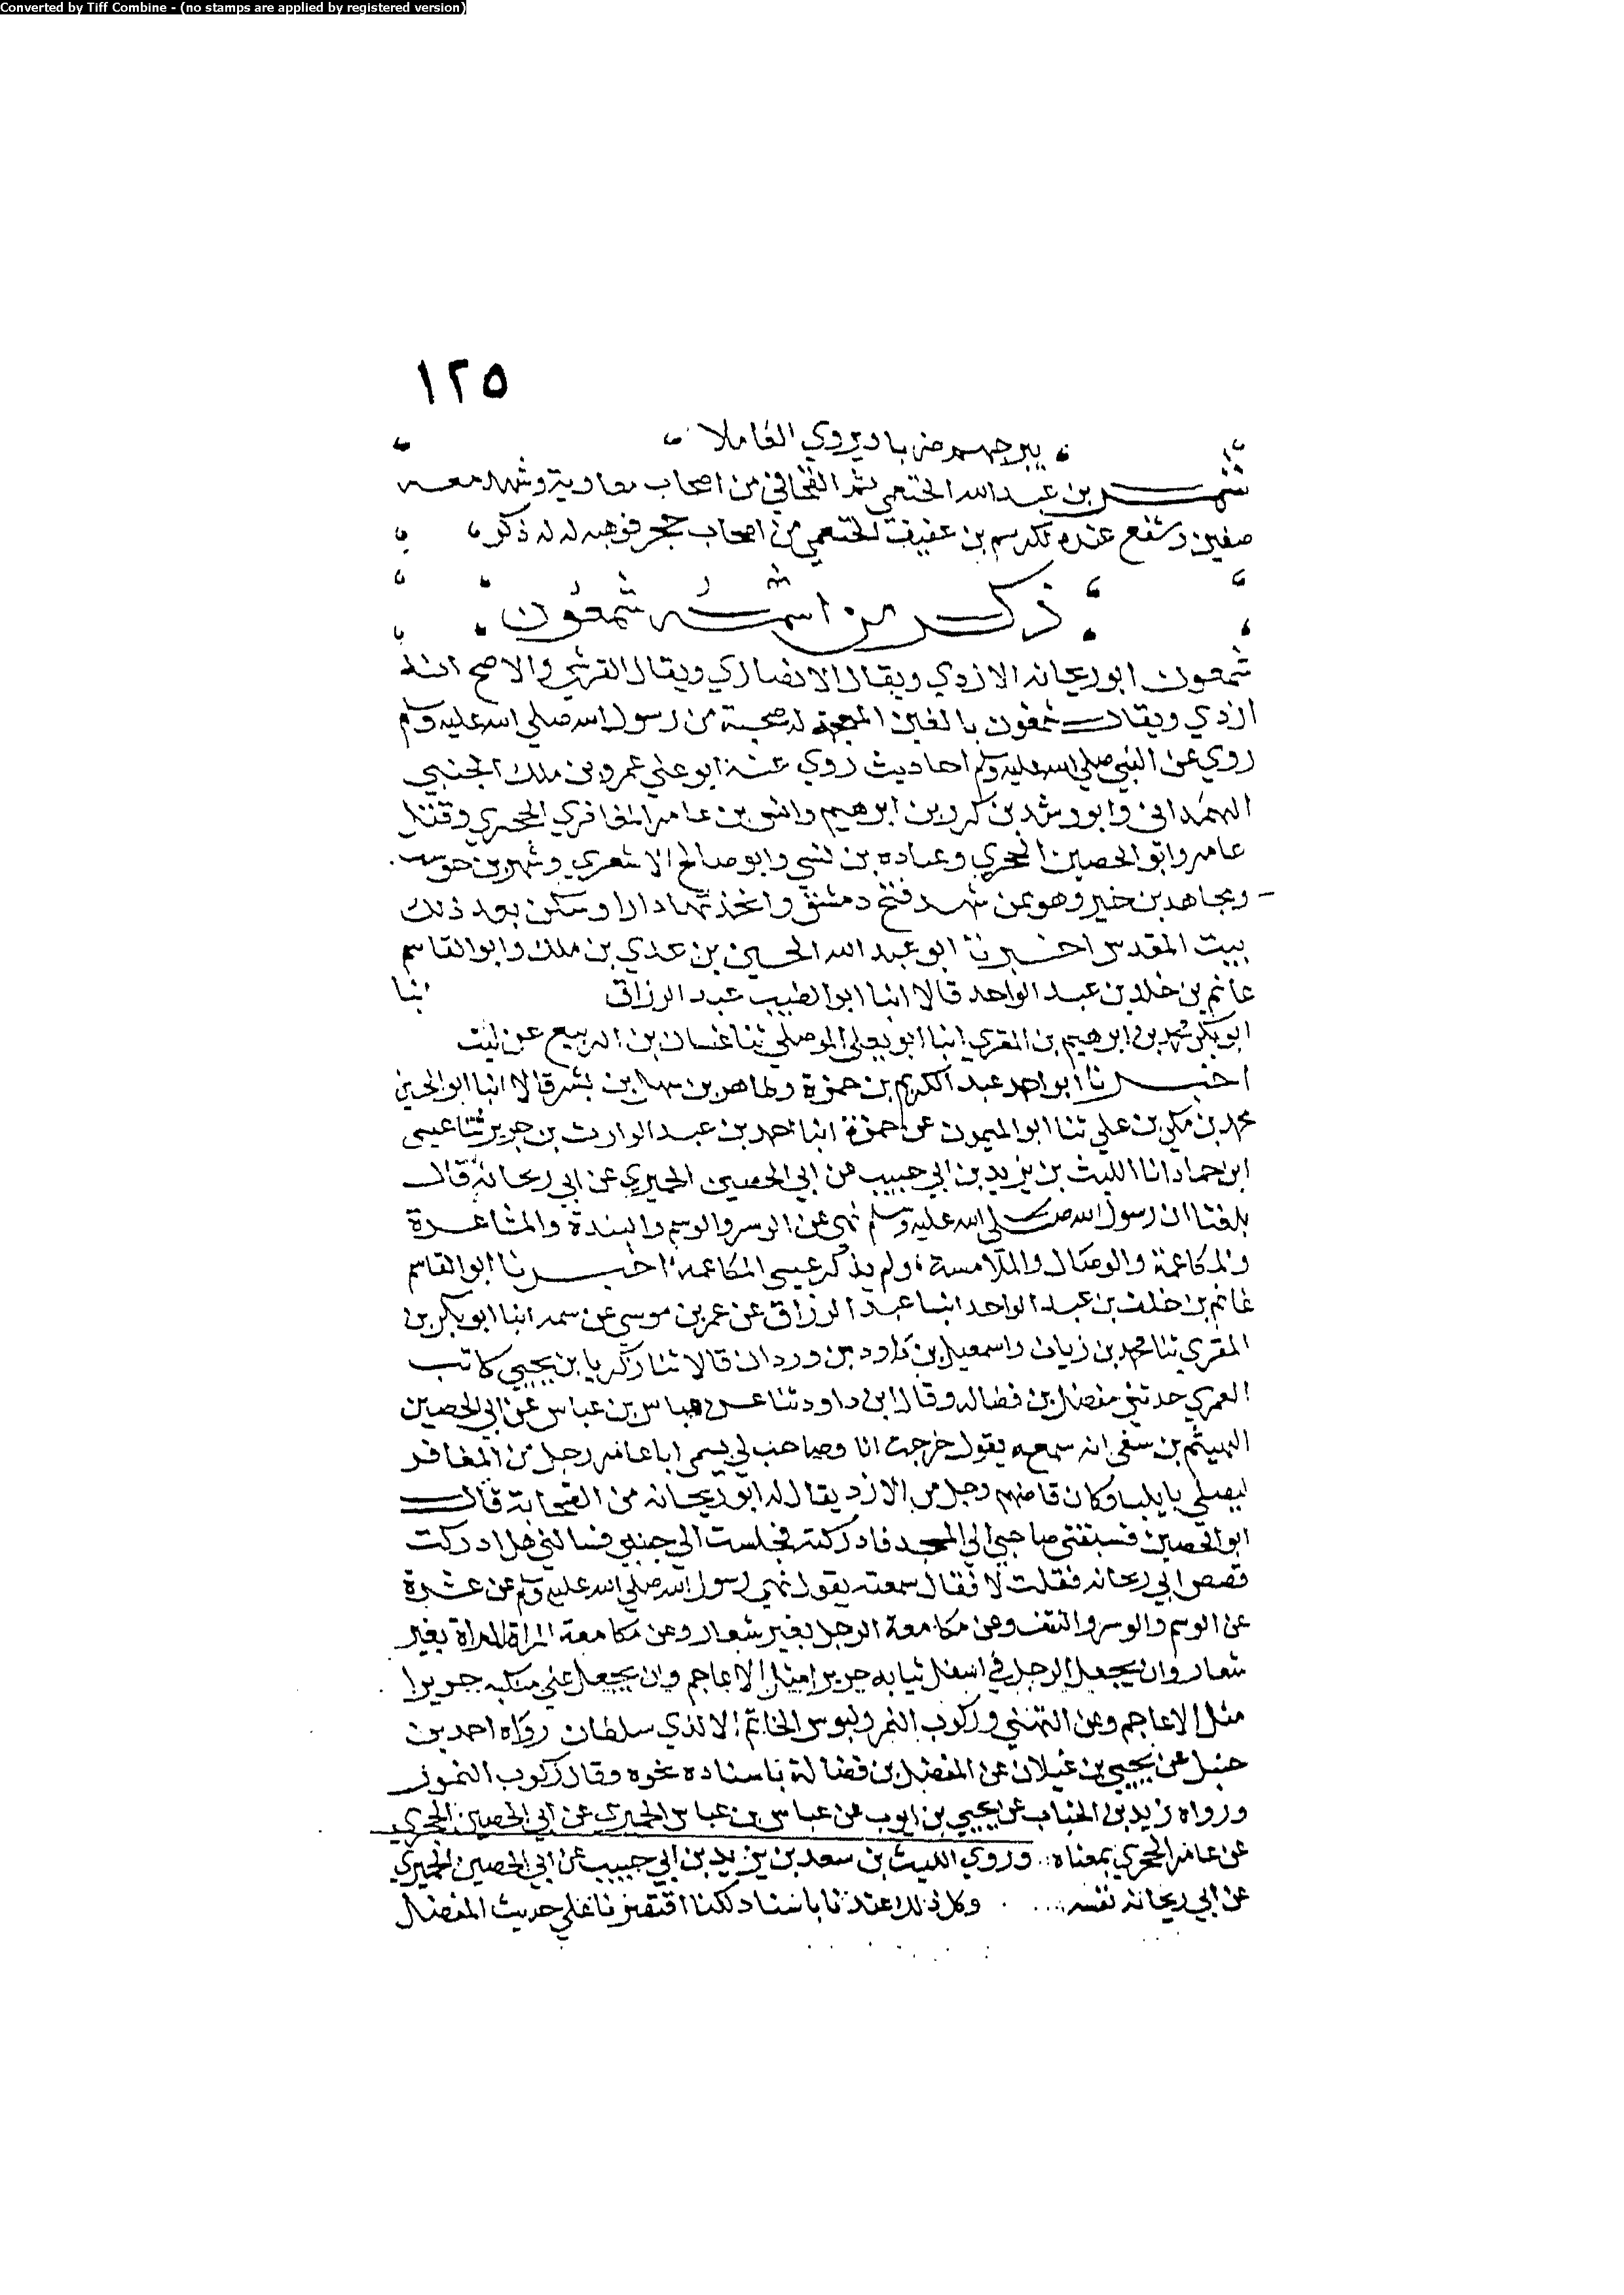 Converted by Tiff Combine - (no stamps are applied by registered version)
١٢٥
يروي الفاملا
شمر بن عبد الله الخثعمي ثم القحافي من اصحاب معاوية وشهد معه
صفين وشفع عنده بن عفيف الخثعمي من اصحاب حجر فوهبه له له ذكر
ذكر من اسمه شمعون
شمعون ابو ريحانه الازدي ويقال الانصاري ويقال القرشي والاصح انه
ازدي ويقال شمغون بالغين المعجمة له صحبة من رسول الله صلي الله عليه وسلم
روي عن النبي صلي الله عليه وسلم احاديث روي عنه ابو علي عمرو بن ملك الجنبي
الهمداني وابو رشد بن كرد بن ابرهيم وانس بن عامر المغافري الحجري وقتل
عامر وابو الحصين الحجري وعباده بن نسي وابو صالح الاشعري وشهر بن حوشب
ومجاهد بن خير وهو ممن شهد فتح دمشق واتخذ بها دارا وسكن بعد ذلك
بيت المقدس اخبرنا ابو عبد الله الحسين بن عدي بن ملك وابو القاسم
غانم بن خلد بن عبد الواحد قالا انبا ابو الطيب عبد الرزاق انبا
ابو بكر محمد بن ابرهيم بن المقري انبا ابو يعلي الموصلي ثنا غسان بن الربيع عن ليث
اخبرنا ابو احمد عبد الكريم بن حمزة وطاهر بن سهل بن بشر قالا انبا ابو الحسين
محمد بن مكي بن علي ثنا ابو الميمون عن حمزة انبا احمد بن عبد الوارث بن جرير ثنا عيسى
ابن حماد انا الليث بن يزيد بن ابي حبيب عن ابي الحصين الحميري عن ابي ريحانة قال
بلغنا ان رسول الله صلى الله عليه وسلم نهى عن الوسر والوسم والبندة والمشاعرة
والمكاعمة والوصال والملامسة ولم يذكر عيسى المكاعمة اخبرنا ابو القاسم
غانم بن خلف بن عبد الواحد انبا عبد الرزاق عن عمر بن موسى عن سمه انبا ابو بكر بن
المقري ثنا محمد بن زيان واسمعيل بن داود بن وردان قالا ثنا زكريا بن يحيى كاتب
العمري حدثني مفضل بن فضاله وقال ابن داود ثنا عن عباس بن عباس عن ابي الحصين
الهيثم بن سفى انه سمعه يقول خرجت انا وصاحب لي يسمى ابا عامر رجل من المغافر
ليصلي بايليا وكان قاضهم رجل من الازد يقال له ابو ريحانه من الصحابة قال
ابو الحصين فسبقني صاحبي الي المسجد فادركته فجلست الي جنبه فسالني هل ادركت
قصص ابي ريحانه فقلت لا فقال سمعته يقول نهى رسول الله صلي الله عليه وسلم عن عشرة
عن الوسم والوسر والنتف وعن مكامعة الرجل بغير شعار وعن مكامعة المراة المراة بغير
شعار وان يجعل الرجل في اسفل ثيابه حريرا مثل الاعاجم وان يجعل علي منكبه حريرا
مثل الاعاجم وعن النهبي وركوب النمر ولبوس الخاتم الا لذي سلطان رواه احمد بن
حنبل عن يحيي بن غيلان عن المفضل بن فضالة باسناده نحوه وقال ركوب النمور
ورواه زيد بن الحباب عن يحيي بن ايوب عن عباس بن عباس الحميري عن ابي الحصين الحجري
عن عامر الحجري بمعناه وروي الليث بن سعد بن يزيد بن ابي حبيب عن ابي الحصين الحميري
عن ابي ريحانه نفسه وكل ذلك عندنا باسناد لكنا اقتصرنا علي حديث المفضل